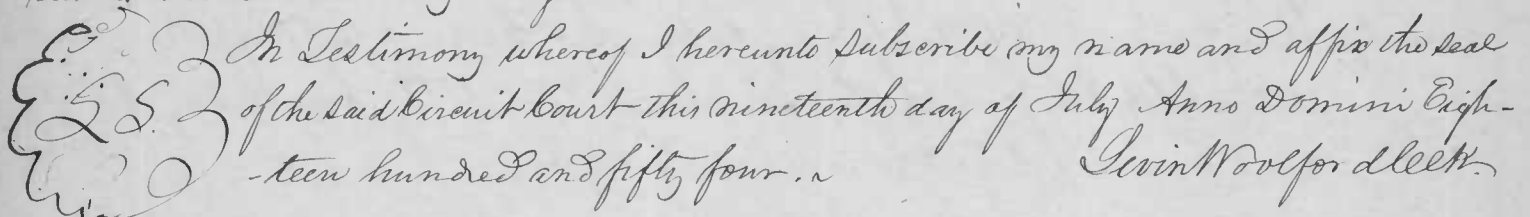 In Testimony whereof I hereunto subscribe my name and affix the seal
L S. of the said Circuit Court this nineteenth day of July Anno Domini Eigh-
-teen hundred and fifty four. ~ Levin Woolford Clerk.